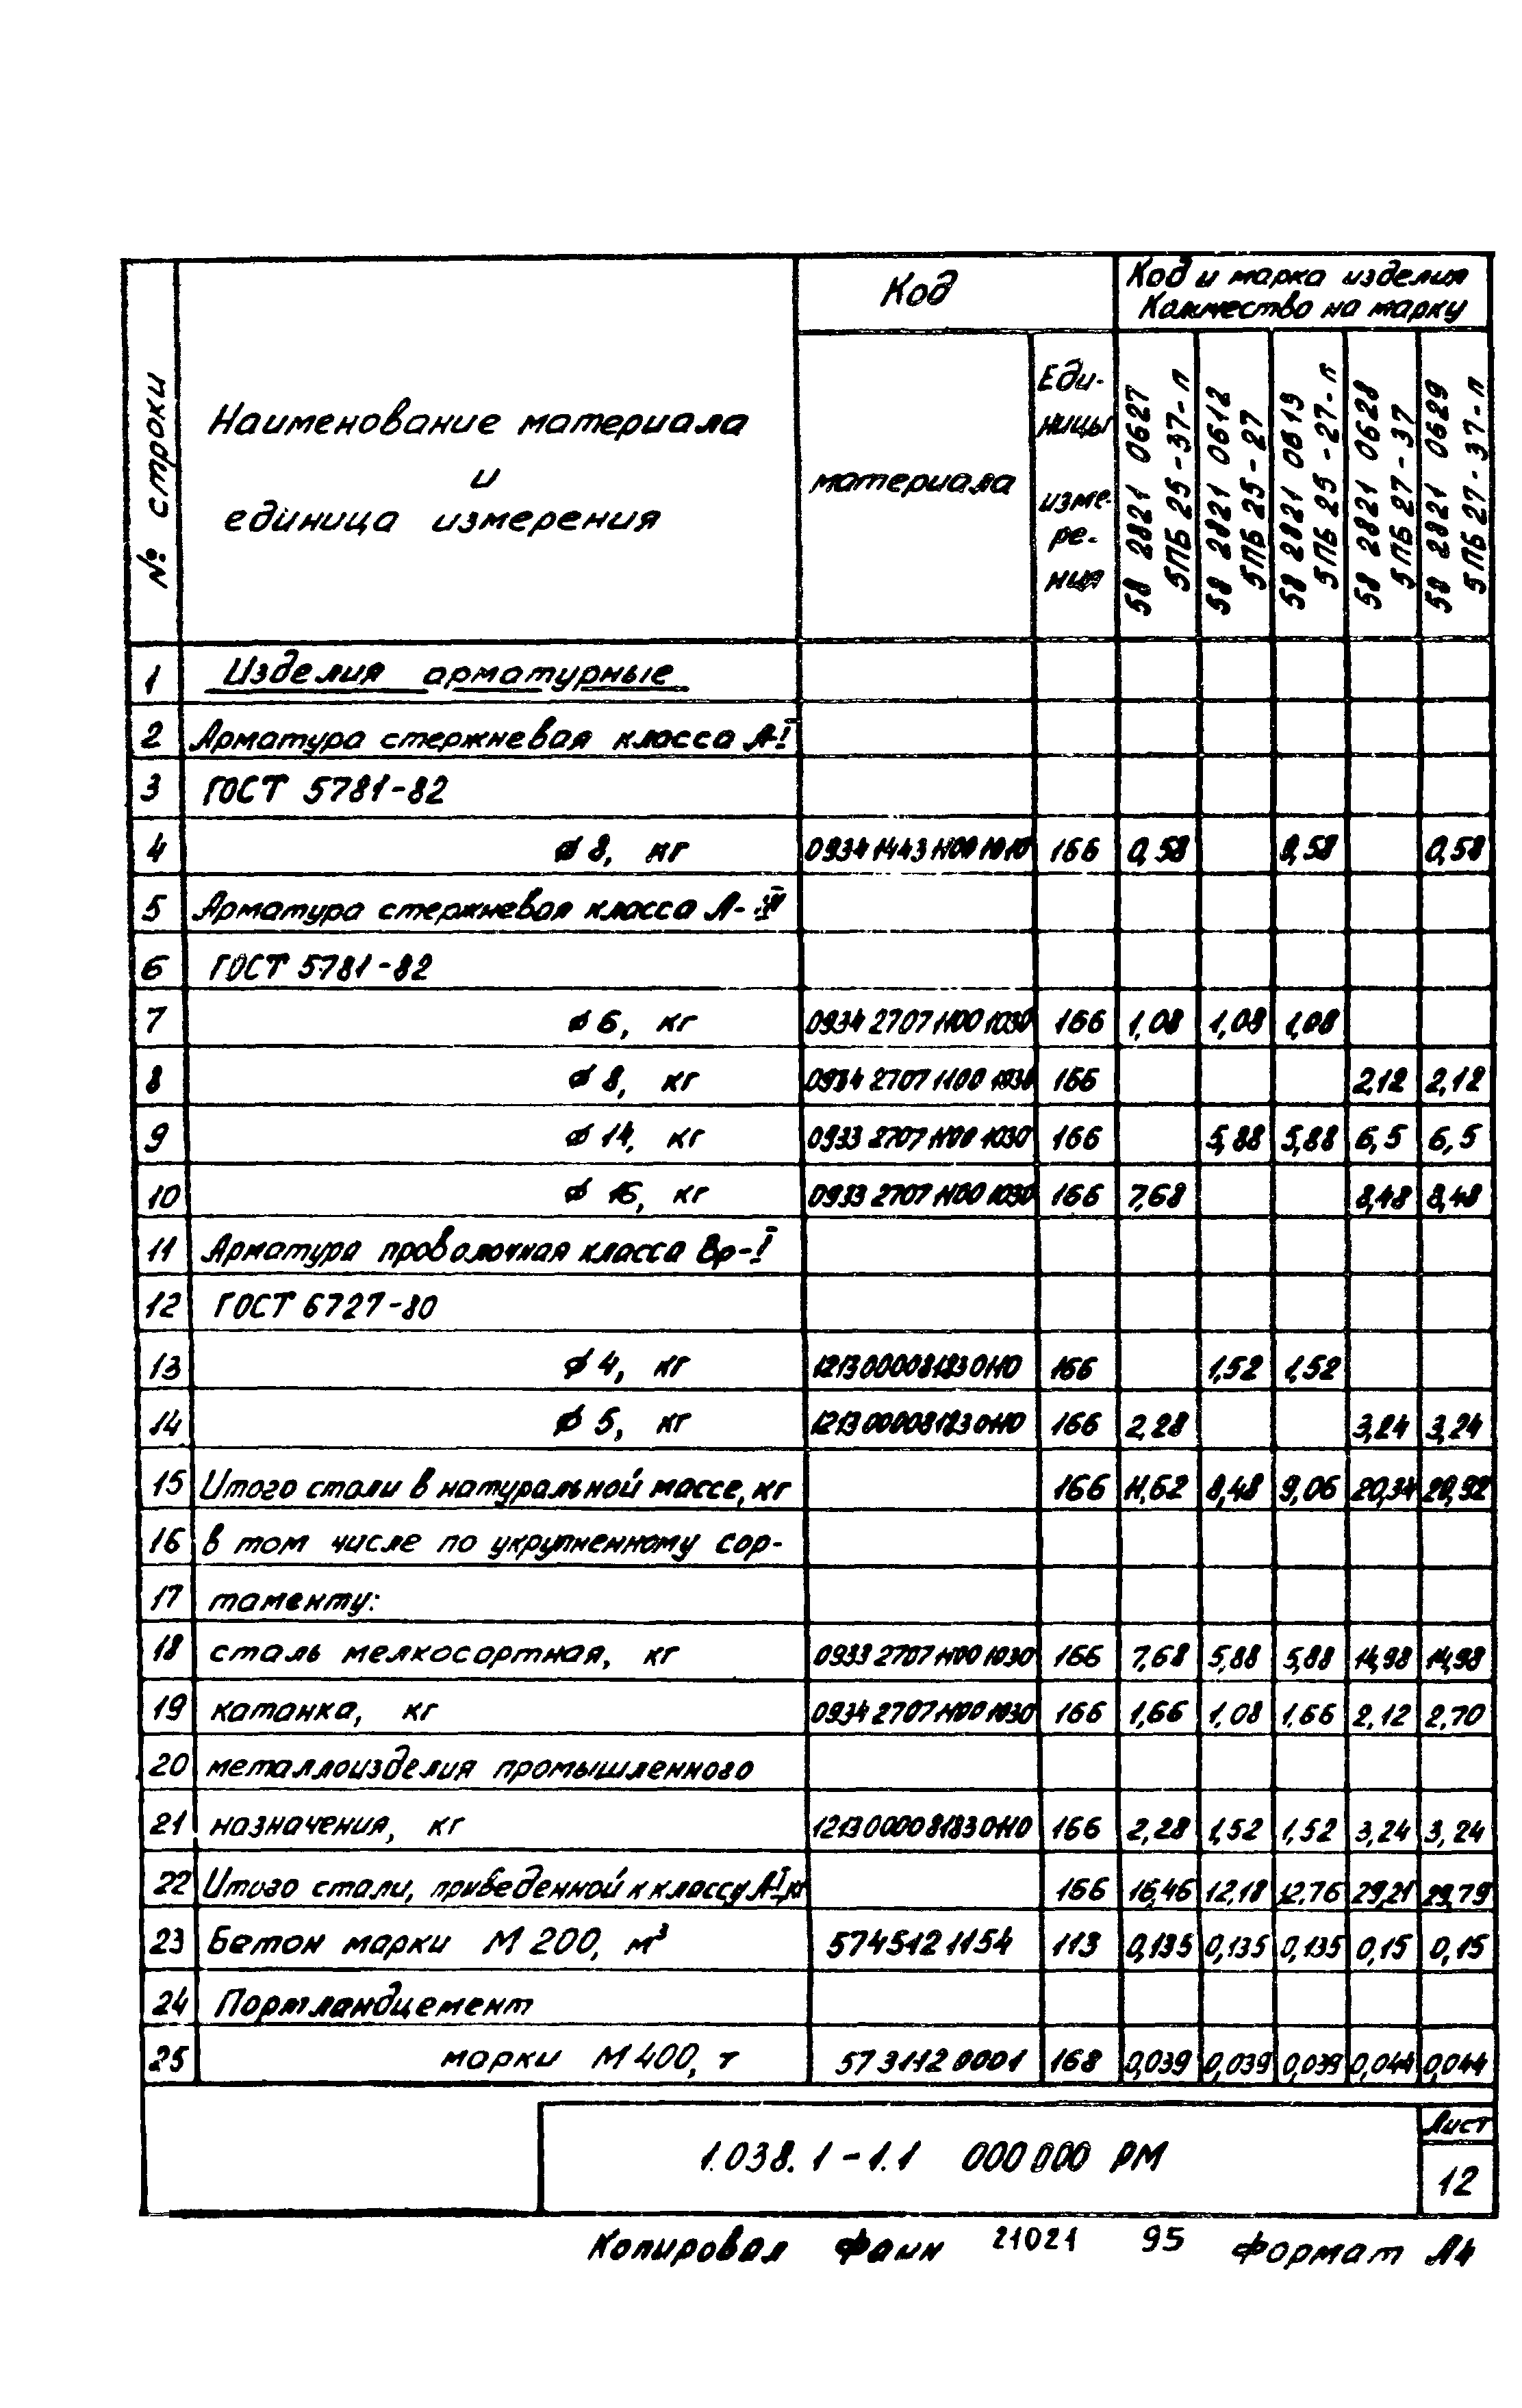 № строки
Наименование материала
и
единица измерения
Код
материала
Еди-
ницы
изме-
ре-
ния
Код и марка изделия
Количество на марку
58 2821 0627
5ПБ 25-37-п
58 2821 0612
5ПБ 25-27
58 2821 0613
5ПБ 25-27-п
58 2821 0628
5ПБ 27-37
58 2821 0629
5ПБ 27-37-п
1 Изделия арматурные
2 Арматура стержневая класса А-I
3 ГОСТ 5781-82
4 ⌀ 8, кг 0934 1443 1100 1010 166 0,58 0,58 0,58
5 Арматура стержневая класса А-III
6 ГОСТ 5781-82
7 ⌀ 6, кг 0934 2707 1100 1030 166 1,08 1,08 1,08
8 ⌀ 8, кг 0934 2707 1100 1030 166 2,12 2,12
9 ⌀ 14, кг 0933 2707 1100 1030 166 5,88 5,88 6,5 6,5
10 ⌀ 16, кг 0933 2707 1100 1030 166 7,68 8,48 8,48
11 Арматура проволочная класса Вр-I
12 ГОСТ 6727-80
13 ⌀ 4, кг 1213000081830110 166 1,52 1,52
14 ⌀ 5, кг 1213000081830110 166 2,28 3,24 3,24
15 Итого стали в натуральной массе, кг 166 11,62 8,48 9,06 20,34 20,92
16 в том числе по укрупненному сор-
17 таменту:
18 сталь мелкосортная, кг 0933 2707 1100 1030 166 7,68 5,88 5,88 14,98 14,98
19 катанка, кг 0934 2707 1100 1030 166 1,66 1,08 1,66 2,12 2,70
20 металлоизделия промышленного
21 назначения, кг 1213000081830110 166 2,28 1,52 1,52 3,24 3,24
22 Итого стали, приведенной к классу А-I, кг 166 16,46 12,18 12,76 29,21 29,79
23 Бетон марки М 200, м³ 5745121154 113 0,135 0,135 0,135 0,15 0,15
24 Портландцемент
25 марки М 400, т 5731120001 168 0,039 0,039 0,039 0,044 0,044
1.038.1-1.1 000 000 РМ
Лист
12
Копировал Фаин 21021 95 Формат А4